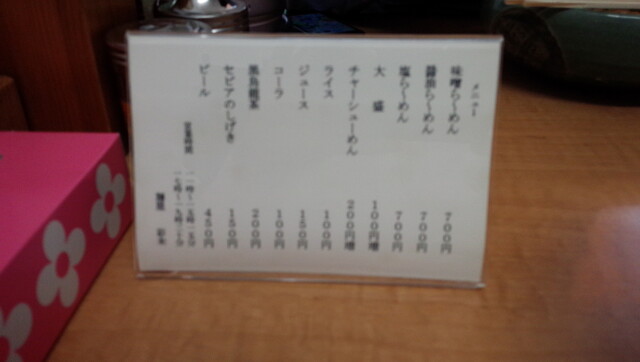 メニュー
味噌らーめん 700円
醤油らーめん 700円
塩らーめん 700円
大盛 100円増
チャーシューめん 200円増
ライス 100円
ジュース 150円
コーラ 100円
黒烏龍茶 200円
セピアのしげき 150円
ビール 450円
営業時間 一一時〜一五時一五分
一七時〜一九時三十分